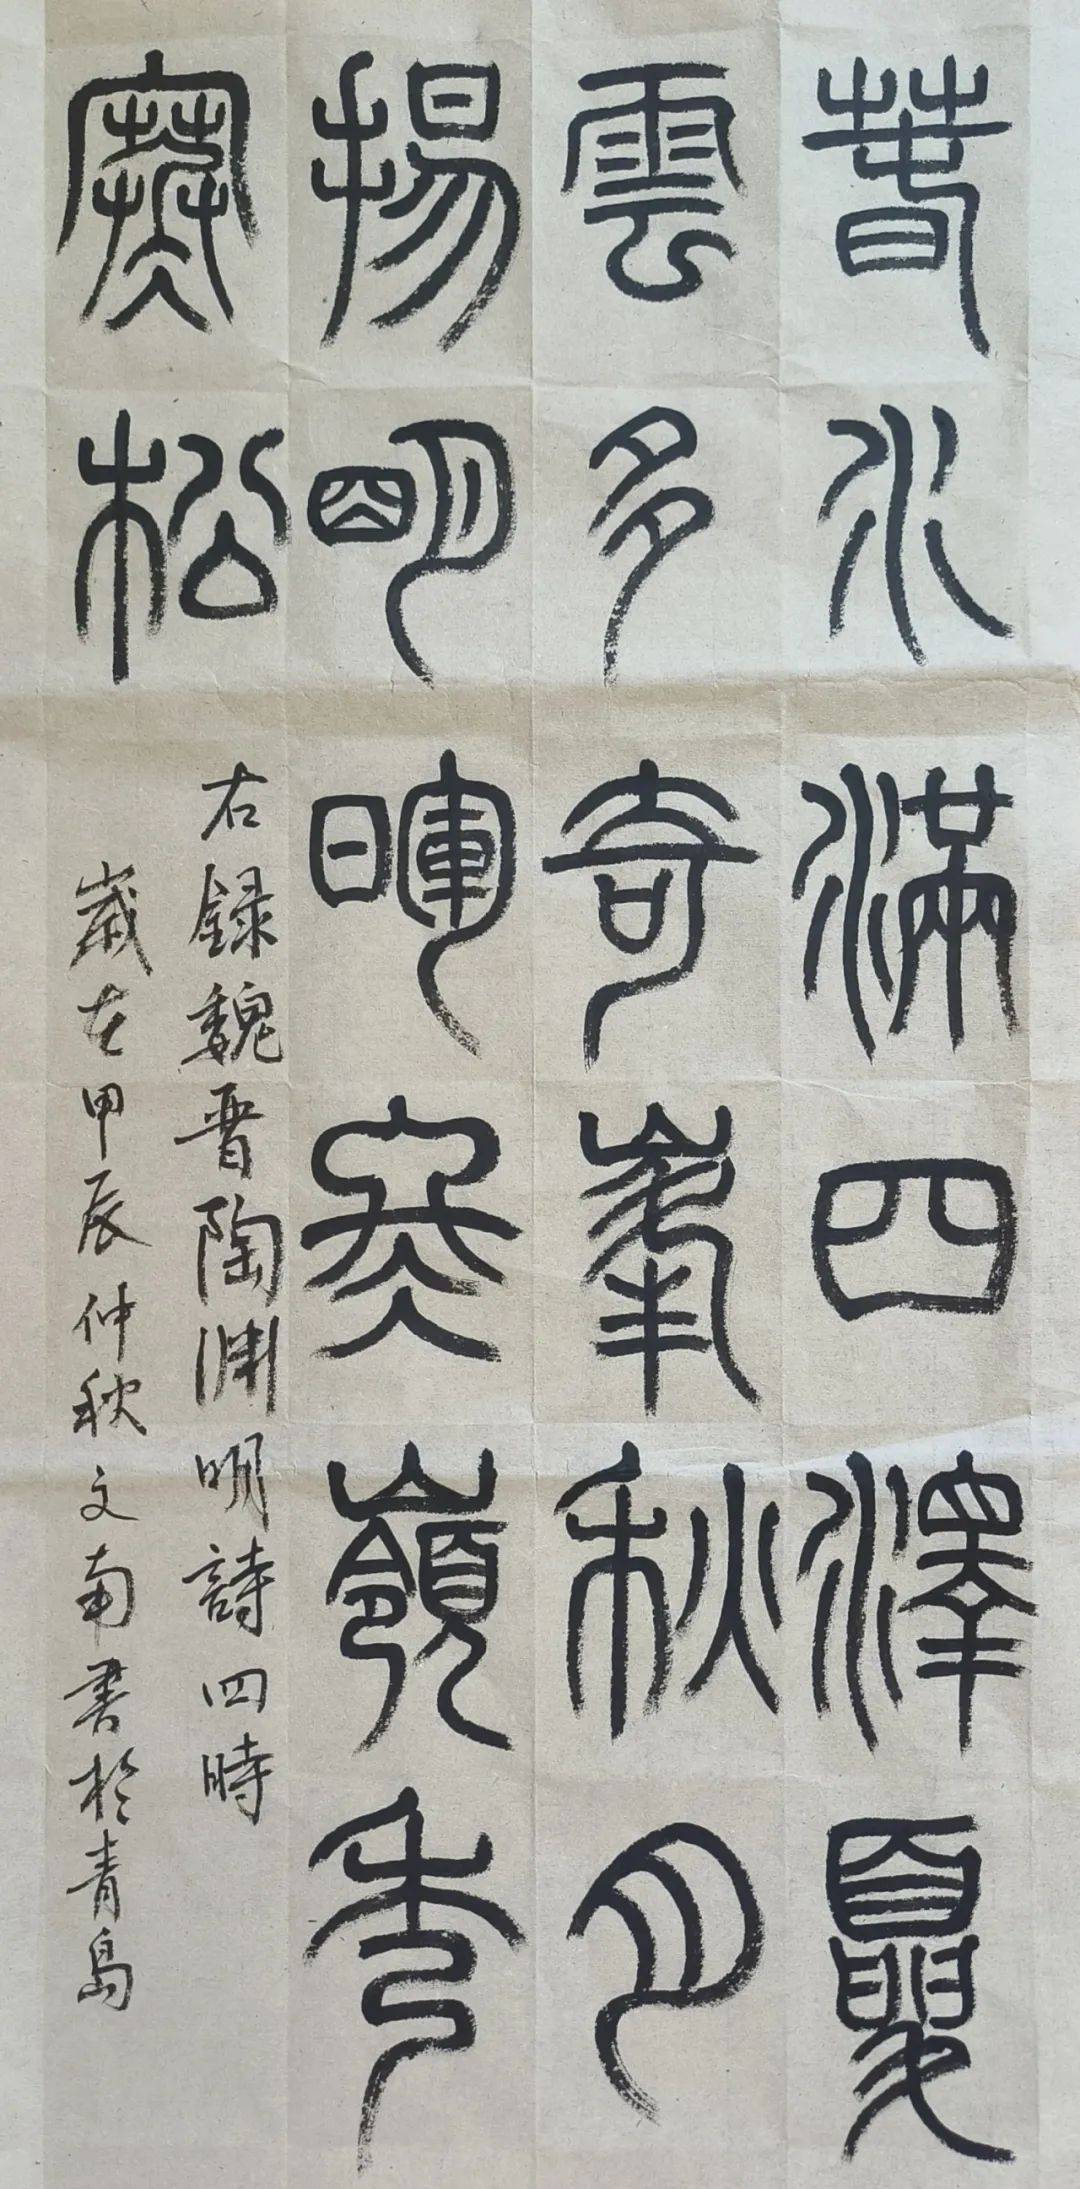 春水滿四澤夏
雲多奇峯秋月
揚明暉冬嶺秀
寒松
右録魏晋陶淵明詩四時
歲在甲辰仲秋文南書於青島